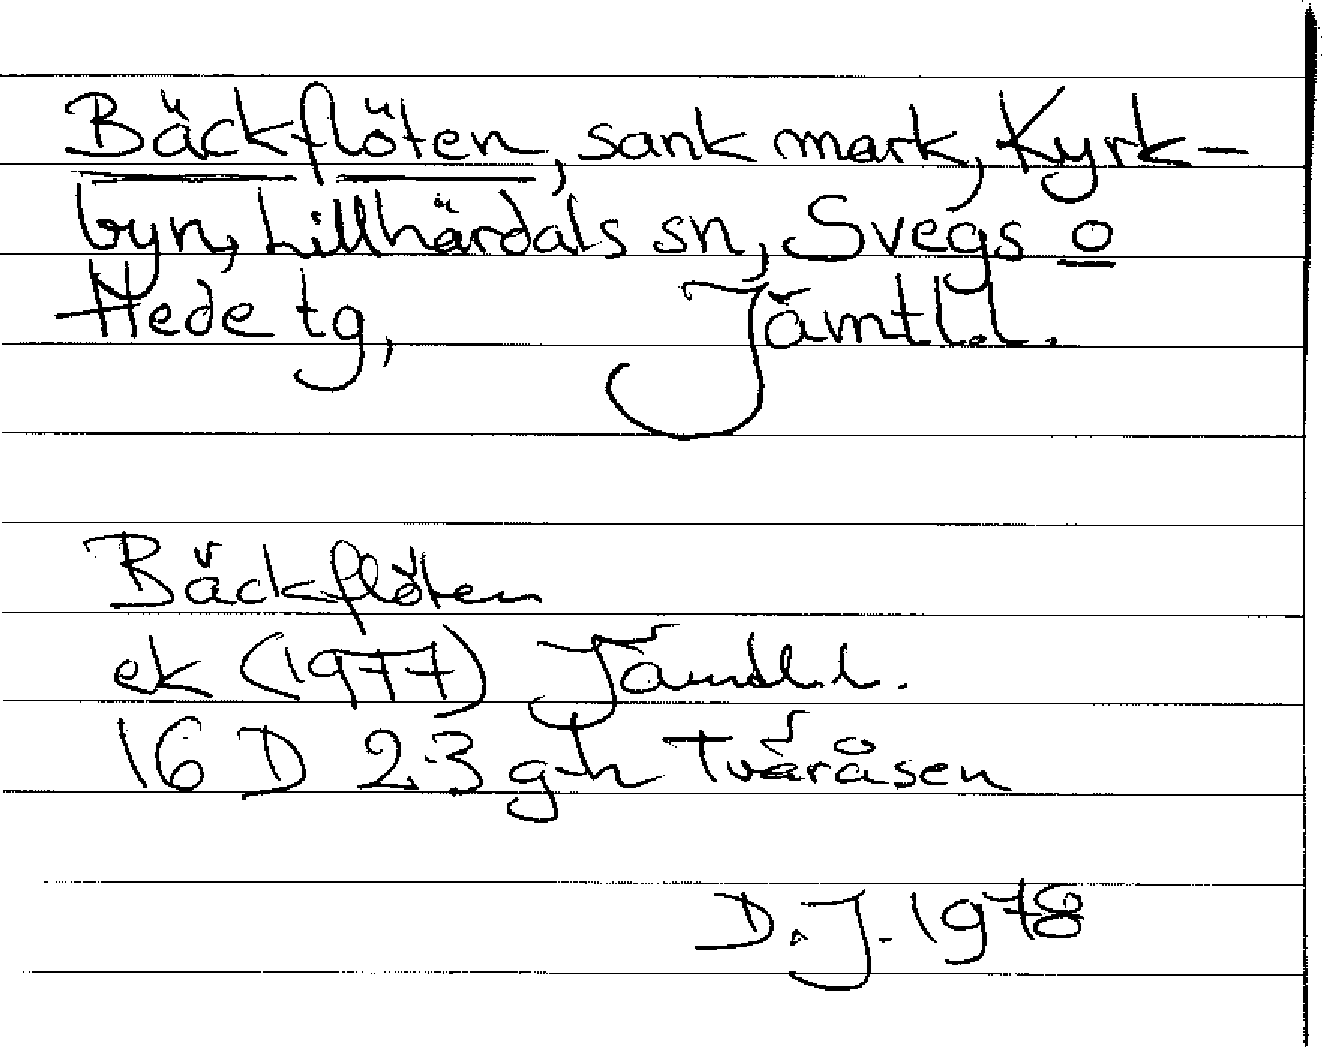 Bäckflöten, sank mark, Kyrk-
byn, Lillhärdals sn, Svegs o
Hede tg, Jämtl.l.
Bäckflöten
ek (1977) Jämtl.l.
16 D 2-3 g-h Tväråsen
D.J. 1978